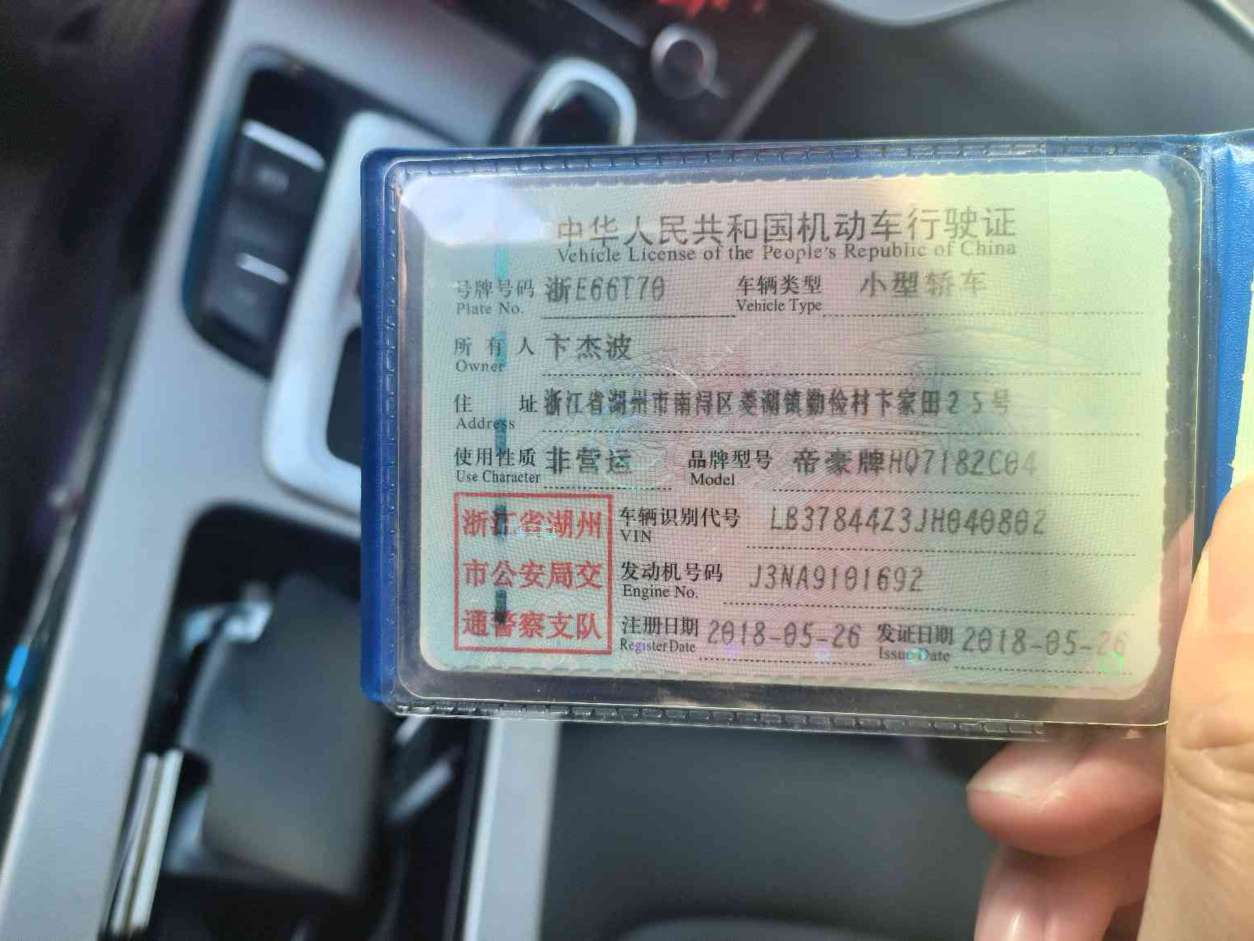 中华人民共和国机动车行驶证
Vehicle License of the People's Republic of China
号牌号码 浙E66T70 车辆类型 小型轿车
Plate No. Vehicle Type
所有人 卞杰波
Owner
住址 浙江省湖州市南浔区菱湖镇勤俭村卞家田25号
Address
使用性质 非营运 品牌型号 帝豪牌HQ7182C04
Use Character Model
浙江省湖州
市公安局交
通警察支队
车辆识别代号 LB37844Z3JH040802
VIN
发动机号码 J3NA9101692
Engine No.
注册日期 2018-05-26 发证日期 2018-05-26
Register Date Issue Date